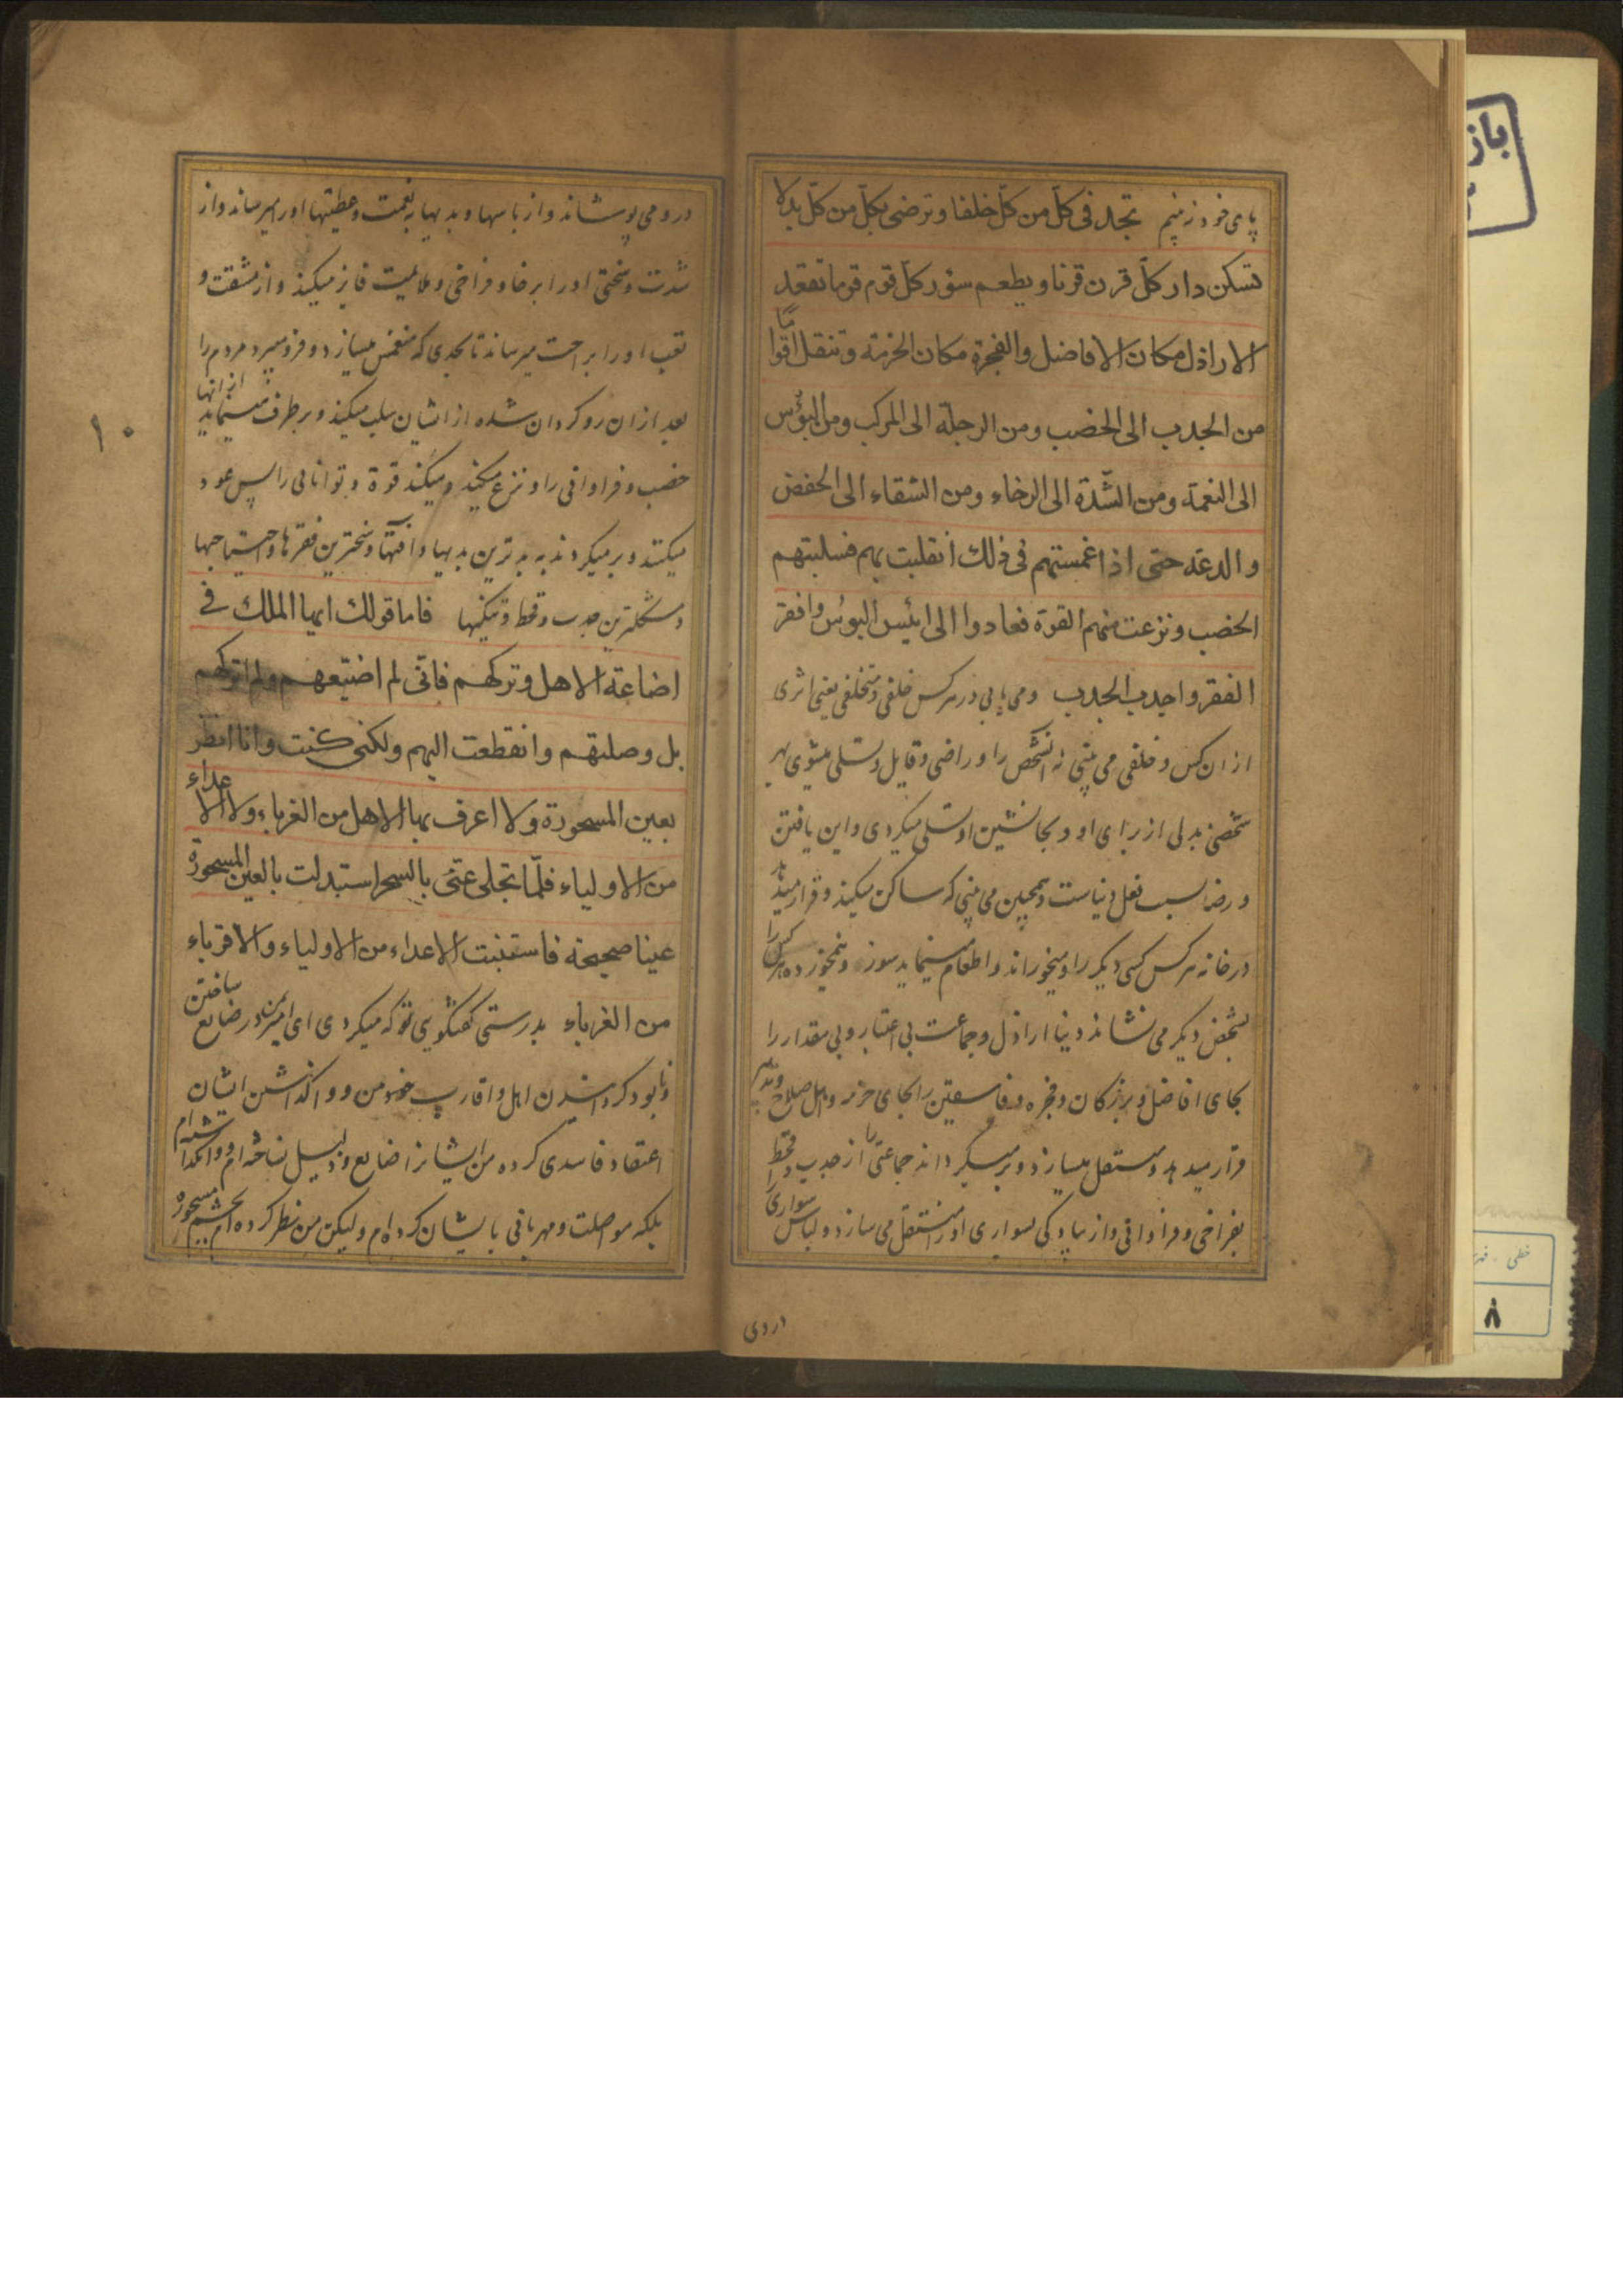 پای خود نه بینیم تجد فی کلّ من کلّ خلفا وترضی بکلّ من کلّ بدلا
تسکن دار کلّ قرن قرنا ویطعم سؤر کلّ قوم قوما تقعد
الاراذل مکان الافاضل والفجرة مکان الحزمة وتنقل اقواما
من الجدب الی الخصب ومن الرجلة الی المرکب ومن البؤس
الی النعمة ومن الشّدة الی الرخاء ومن الشقاء الی الخفض
والدعة حتی اذا غمستهم فی ذلك انقلبت بهم فسلبتهم
الخصب ونزعت منهم القوة فعادوا الی ابئس البؤس وافقر
الفقر واجدب الجدب ومی یابی در هر کس خلفی ومتخلفی یعنی اثری
از ان کس وخلفی می بینی نه آنشخص را وراضی وقایل وتسلی میشوی بهر
شخصی بدلی از برای او وبجانشین او تسلی میکردی واین یافتن
ورضا بسبب فعل دنیاست وهمچنین می بینی که ساکن میکند وقرار میدهد
در خانه هر کس کسی دیکر را ومیخوراند واطعام مینماید سوز ونیمخورده هر کس را
بشخص دیکر می نشاند دنیا اراذل وجماعت بی اعتبار وبی مقدار را
بجای افاضل وبزرکان وفجره وفاسقین را بجای حزمه واهل صلاح وتدبیر
قرار میدهد ومنتقل میسازد وبر میکرداند جماعتی را از جدب وقحط
بفراخی وفراوانی واز پیادکی بسواری او را منتقل می سازد ولباس سواری را
در وی
در و می پوشاند واز باسها وبدیها به نعمت وعطیتها او را میرساند واز
شدت وسختی او را برخا وفراخی وملایمت فایز میکند واز مشقت و
تعب او را براحت میرساند تا بحدی که منغمس میسازد وفرو میبرد مردم را
بعد از ان رو کردان شده از ایشان سلب میکند وبر طرف مینماید از انها
خصب وفراوانی را ونزع میکند ومیکند قوة وتوانائی را پس عود
میکنند وبر میکردند به بدترین بدیها وآفتها وسخترین فقرها واحتیاجها
ومشکلترین جدب وقحط وتنکیها فاما قولك ایها الملك فی
اضاعة الاهل وترکهم فانّی لم اضیّعهم ولم اترکهم
بل وصلتهم وانقطعت الیهم ولکنی کنت وانا انظر
بعین المسحورة ولا اعرف بها الاهل من الغرباء ولا الاعداء
من الاولیاء فلمّا تجلی عنّی بالسحر استبدلت بالعین المسحورة
عینا صحیحة فاستبنت الاعداء من الاولیاء والاقرباء
من الغرباء بدرستی کفتکویی تو که میکردی ای امیر من در ضایع ساختن
ونابود کردانیدن اهل واقارب خود من وواکذاشتن ایشان
اعتقاد فاسدی کرده من ایشانرا ضایع وذلیل نساخته ام ووانکذاشته ام
بلکه مواصلت ومهربانی بایشان کرده ام ولیکن من نظر کرده ام بچشم مسحوره
۱۰
باز
خطی
۸